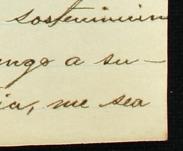 sostenimien
engo a su-
ia, me sea